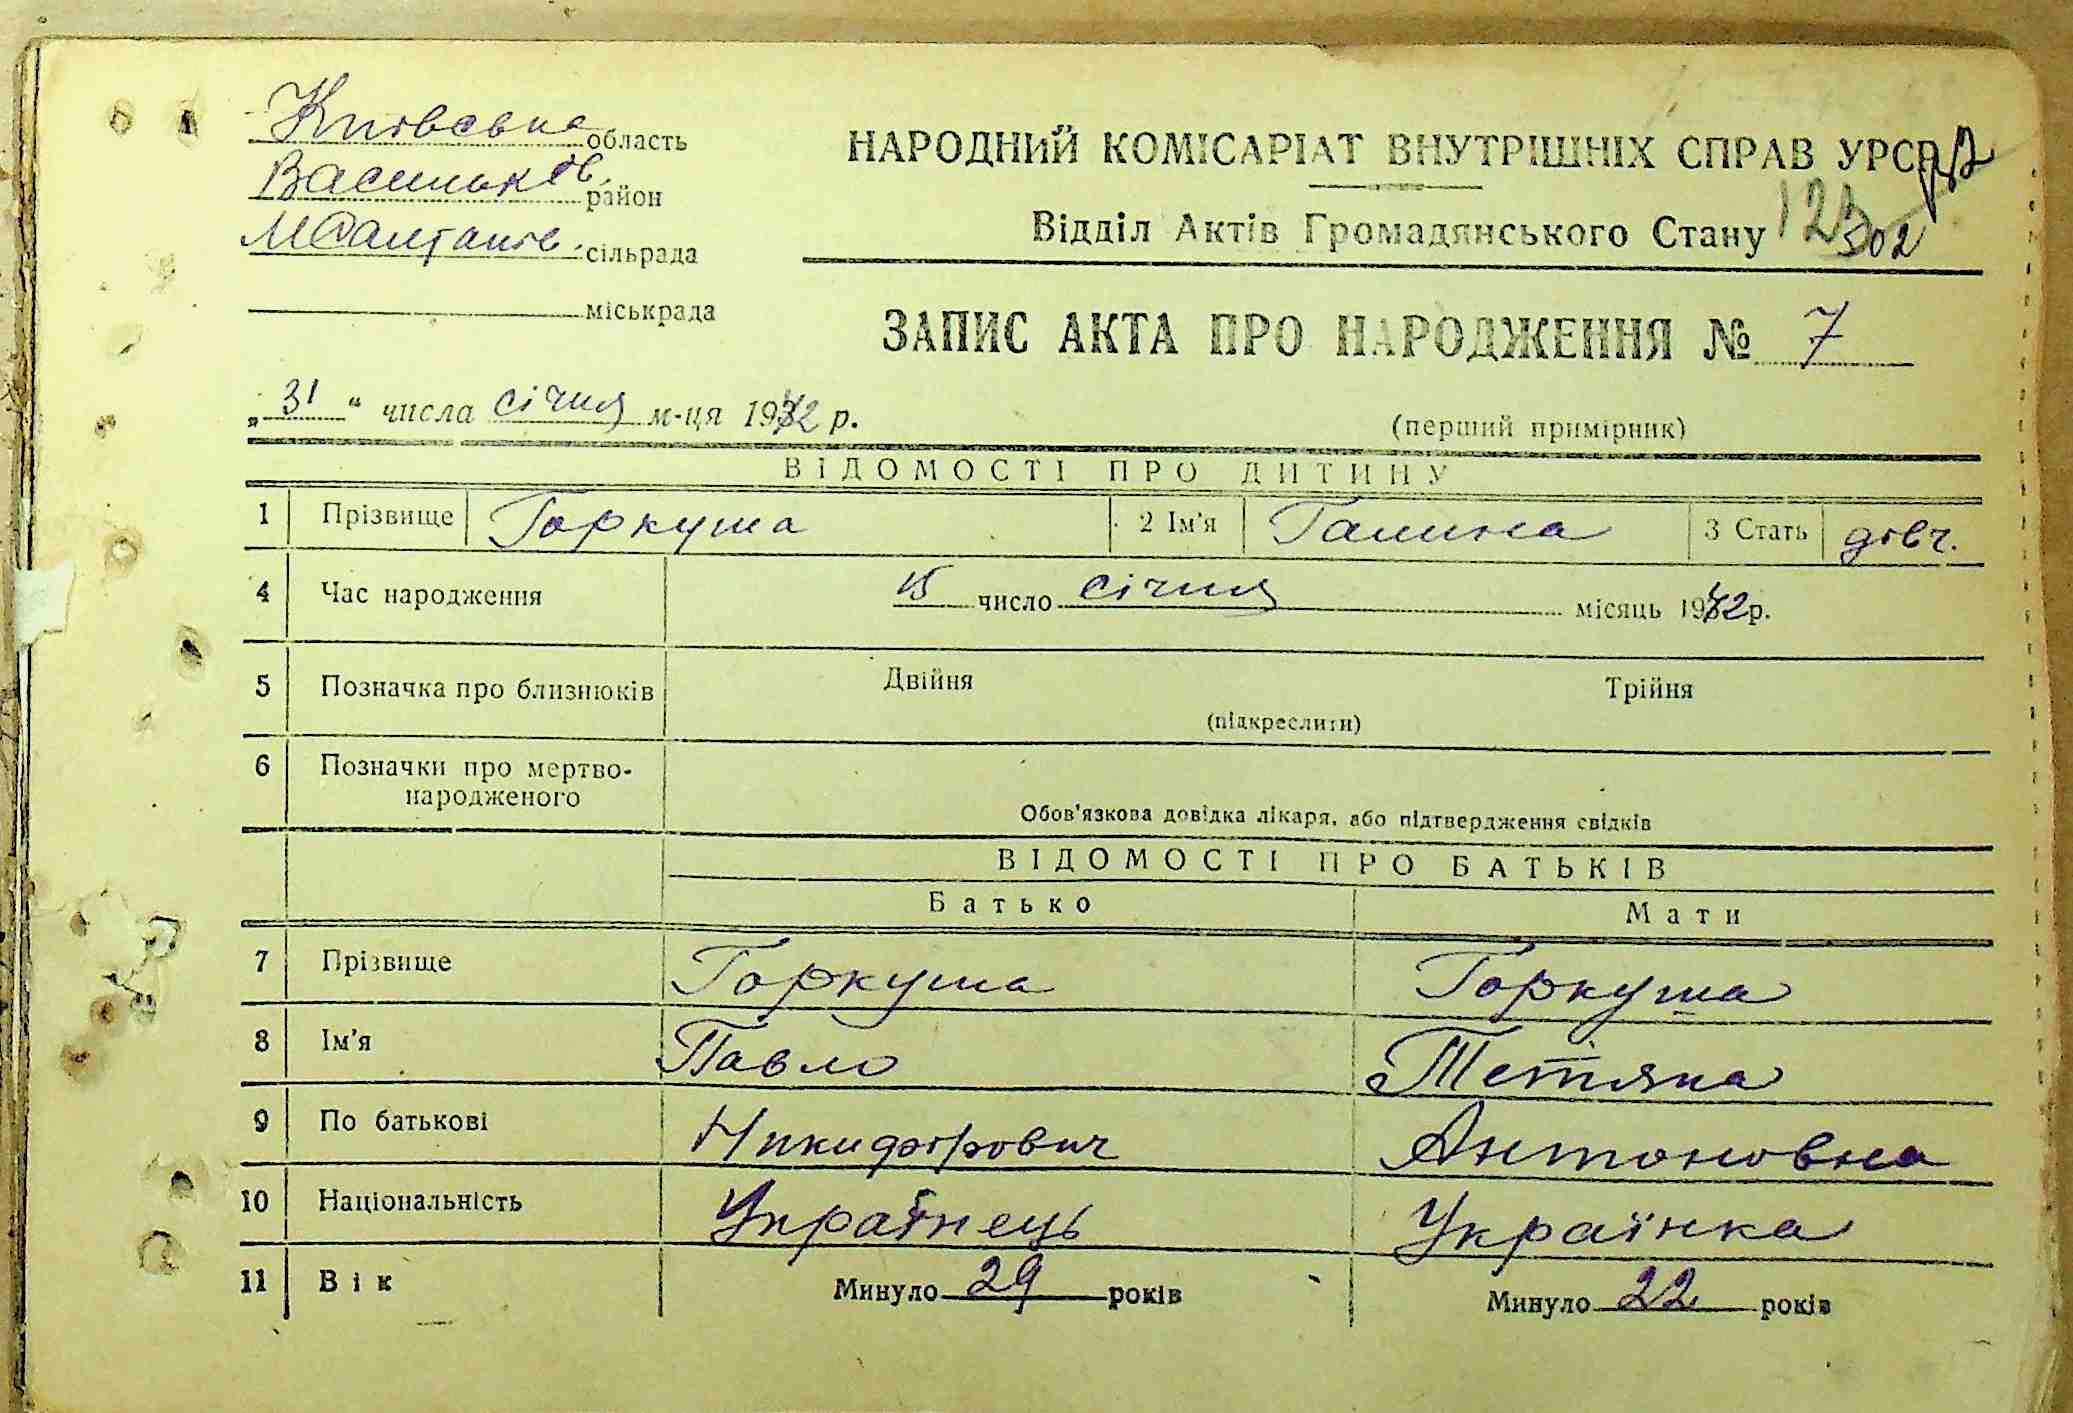 Київська область
Васильків. район
МСалтанів. сільрада
міськрада
НАРОДНИЙ КОМІСАРІАТ ВНУТРІШНІХ СПРАВ УРСР
Відділ Актів Громадянського Стану
302
ЗАПИС АКТА ПРО НАРОДЖЕННЯ № 7
„31“ числа січня м-ця 1942 р.
(перший примірник)
ВІДОМОСТІ ПРО ДИТИНУ
1 Прізвище Горкуша 2 Ім'я Галина 3 Стать дівч.
4 Час народження 15 число січня місяць 1942 р.
5 Позначка про близнюків Двійня Трійня
(підкреслити)
6 Позначки про мертво-
народженого
Обов'язкова довідка лікаря, або підтвердження свідків
ВІДОМОСТІ ПРО БАТЬКІВ
Батько Мати
7 Прізвище Горкуша Горкуша
8 Ім'я Павло Тетяна
9 По батькові Никифорович Антоновна
10 Національність Українець Українка
11 Вік Минуло 29 років Минуло 22 років